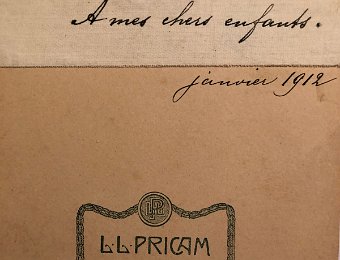 A mes chers enfants.
janvier 1912
L.L. PRICAM